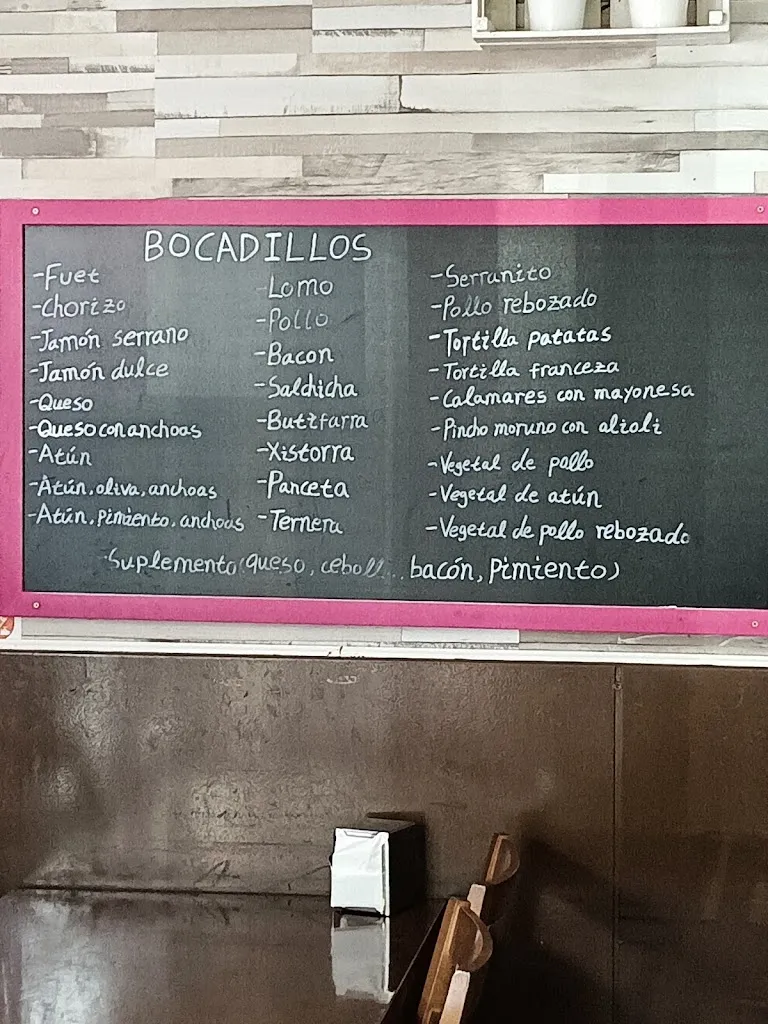 BOCADILLOS
-Fuet
-Chorizo
-Jamón serrano
-Jamón dulce
-Queso
-Queso con anchoas
-Atún
-Atún, oliva, anchoas
-Atún, pimiento, anchoas
-Lomo
-Pollo
-Bacon
-Salchicha
-Butifarra
-Xistorra
-Panceta
-Ternera
-Serranito
-Pollo rebozado
-Tortilla patatas
-Tortilla franceza
-Calamares con mayonesa
-Pincho moruno con alioli
-Vegetal de pollo
-Vegetal de atún
-Vegetal de pollo rebozado
-Suplemento (queso, bacón, Pimiento)